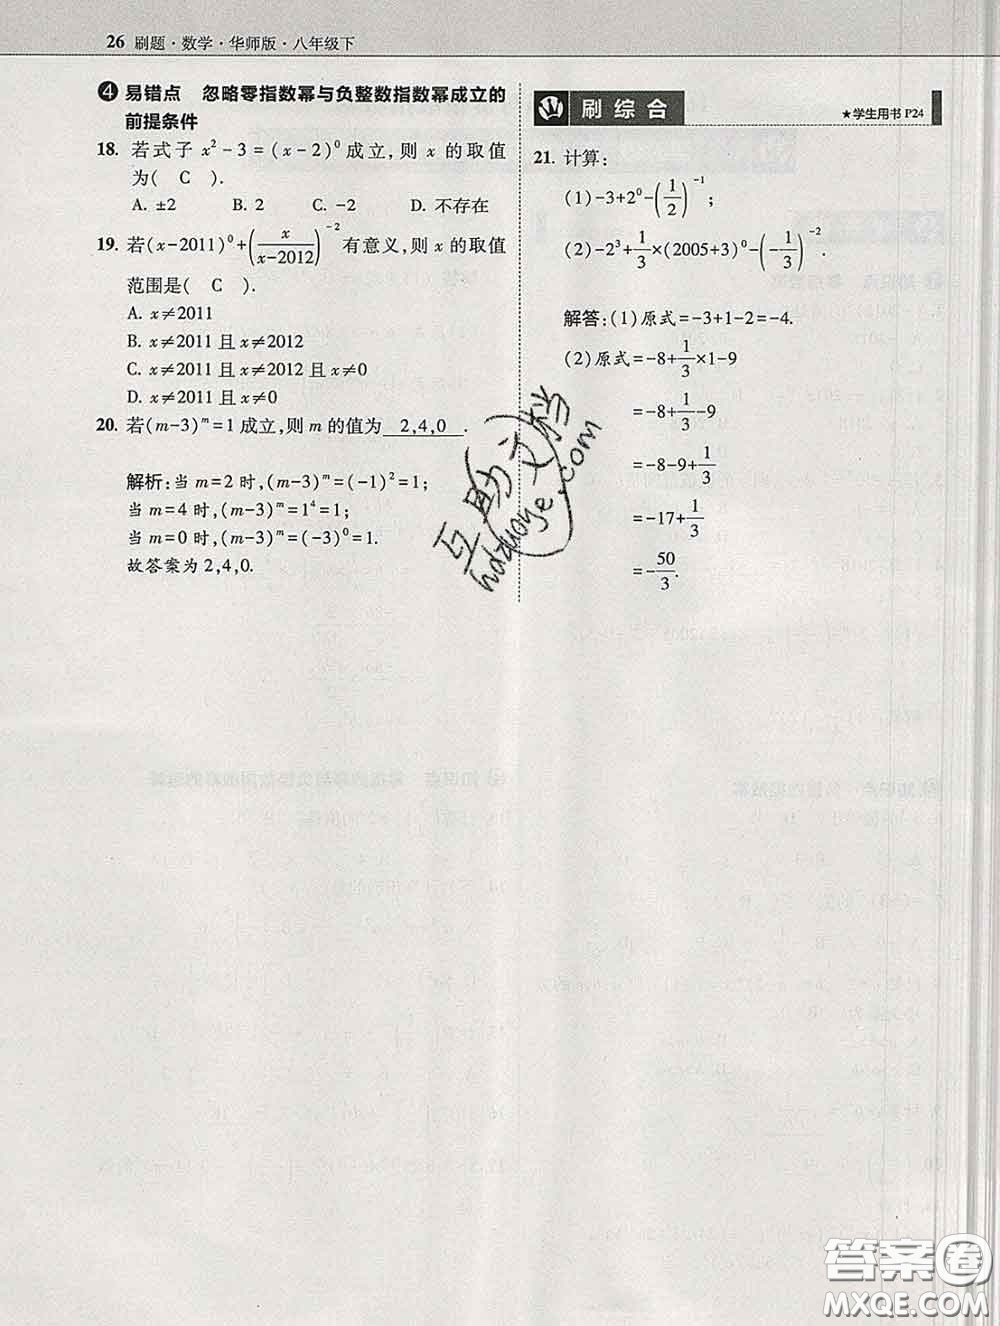 26 刷题·数学·华师版·八年级下
❹ 易错点 忽略零指数幂与负整数指数幂成立的
前提条件
18. 若式子 x²-3=(x-2)⁰ 成立,则 x 的取值
为( C ).
A. ±2 B. 2 C. -2 D. 不存在
19. 若(x-2011)⁰+(x/(x-2012))⁻²有意义,则 x 的取值
范围是( C ).
A. x≠2011
B. x≠2011 且 x≠2012
C. x≠2011 且 x≠2012 且 x≠0
D. x≠2011 且 x≠0
20. 若(m-3)ᵐ=1 成立,则 m 的值为 2,4,0 .
解析:当 m=2 时,(m-3)ᵐ=(-1)²=1;
当 m=4 时,(m-3)ᵐ=1⁴=1;
当 m=0 时,(m-3)ᵐ=(-3)⁰=1.
故答案为 2,4,0.
刷综合 ★学生用书 P24
21. 计算:
(1)-3+2⁰-(1/2)⁻¹;
(2)-2³+1/3×(2005+3)⁰-(-1/3)⁻².
解答:(1)原式=-3+1-2=-4.
(2)原式=-8+1/3×1-9
=-8+1/3-9
=-8-9+1/3
=-17+1/3
=-50/3.
互助文档
hdzuoye.com
答案圈
MXQE.COM